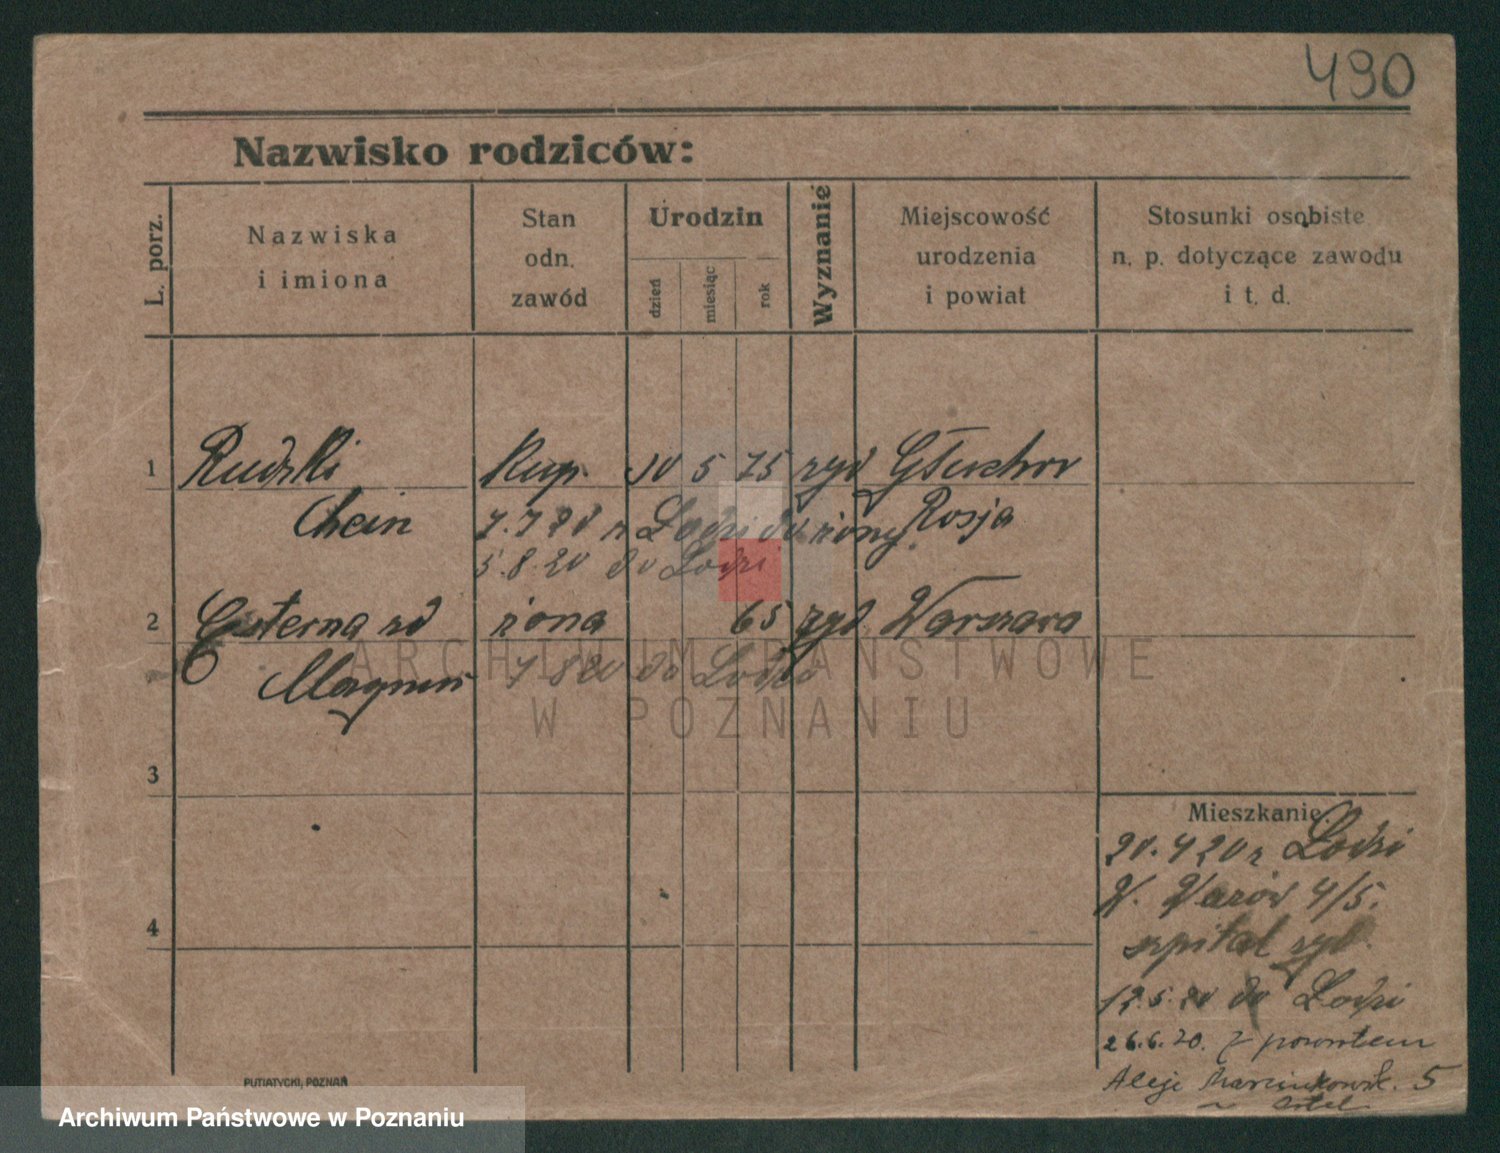 490
Nazwisko rodziców:
L. porz.
Nazwiska
i imiona
Stan
odn.
zawód
Urodzin
dzień
miesiąc
rok
Wyznanie
Miejscowość
urodzenia
i powiat
Stosunki osobiste
n. p. dotyczące zawodu
i t. d.
1 Rudzki Kup. 10 5 75 żyd Głuchov
Chein 7.7 20 z Łodzi do żony Rosja
5.8.20 do Łodzi
2 Esterna żona 65 żyd Warszawa
7 8 20 do Łodzi
ARCHIWUM PAŃSTWOWE
W POZNANIU
3
4
Mieszkanie.
20.4 20 z Łodzi
W. 4/5.
szpital żyd
12.5.20 do Łodzi
26.6.20. z powrotem
Aleje Marcinkowsk. 5
PUTIATYCKI, POZNAŃ
Archiwum Państwowe w Poznaniu